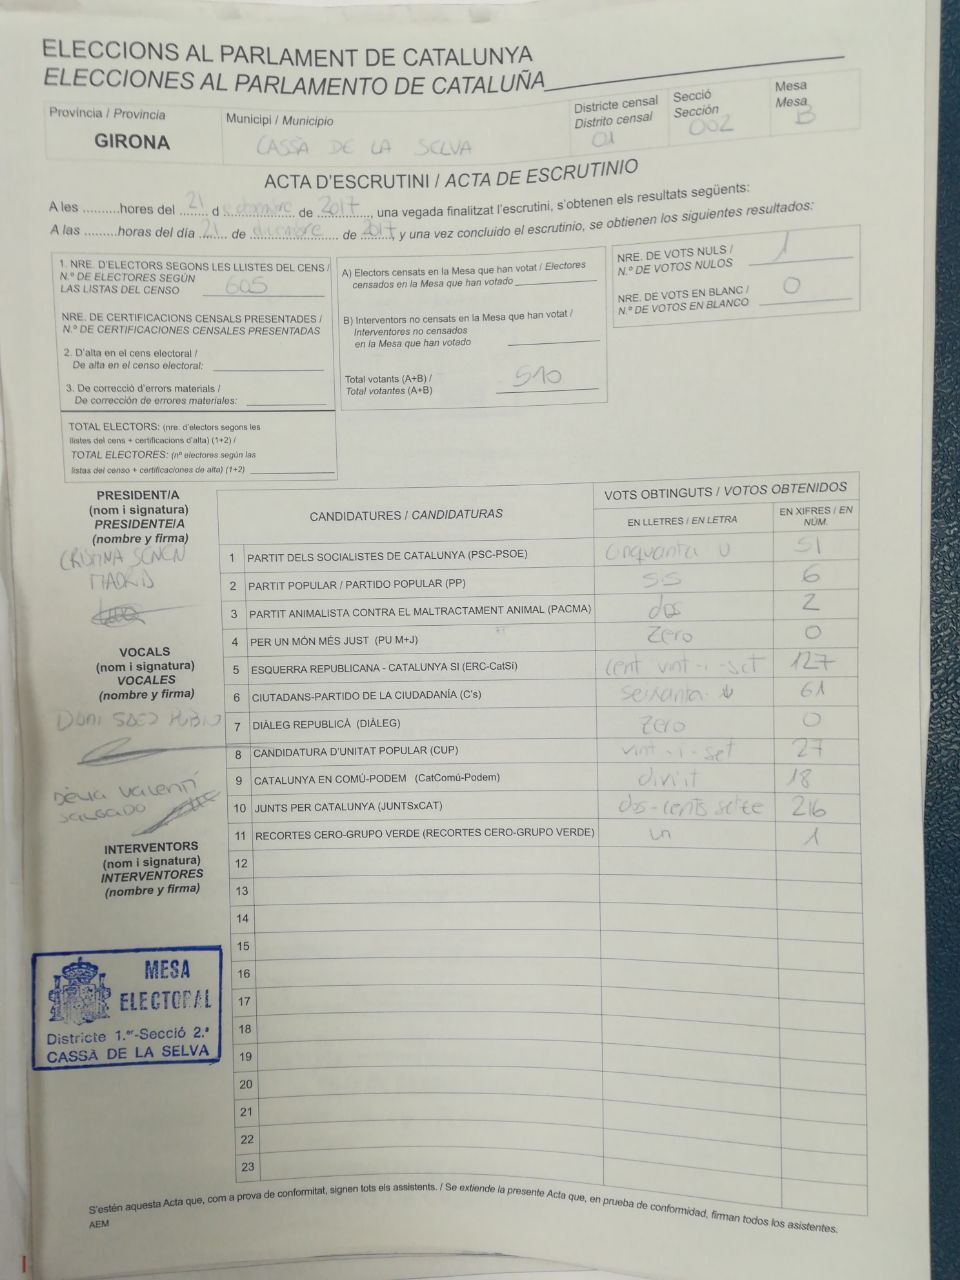 ELECCIONS AL PARLAMENT DE CATALUNYA
ELECCIONES AL PARLAMENTO DE CATALUÑA
Província / Provincia
GIRONA
Municipi / Municipio
CASSÀ DE LA SELVA
Districte censal
Distrito censal
01
Secció
Sección
002
Mesa
Mesa
B
ACTA D'ESCRUTINI / ACTA DE ESCRUTINIO
A les ..........hores del 21 d de 2017, una vegada finalitzat l'escrutini, s'obtenen els resultats següents:
A las .........horas del día 21 de diciembre de 2017 y una vez concluido el escrutinio, se obtienen los siguientes resultados:
1. NRE. D'ELECTORS SEGONS LES LLISTES DEL CENS /
N.º DE ELECTORES SEGÚN
LAS LISTAS DEL CENSO 605
NRE. DE CERTIFICACIONS CENSALS PRESENTADES /
N.º DE CERTIFICACIONES CENSALES PRESENTADAS
2. D'alta en el cens electoral /
De alta en el censo electoral:
3. De correcció d'errors materials /
De corrección de errores materiales:
TOTAL ELECTORS: (nre. d'electors segons les
llistes del cens + certificacions d'alta) (1+2) /
TOTAL ELECTORES: (nº electores según las
listas del censo + certificaciones de alta) (1+2)
A) Electors censats en la Mesa que han votat / Electores
censados en la Mesa que han votado
B) Interventors no censats en la Mesa que han votat /
Interventores no censados
en la Mesa que han votado
Total votants (A+B) /
Total votantes (A+B) 510
NRE. DE VOTS NULS /
N.º DE VOTOS NULOS 1
NRE. DE VOTS EN BLANC /
N.º DE VOTOS EN BLANCO 0
PRESIDENT/A
(nom i signatura)
PRESIDENTE/A
(nombre y firma)
CRISTINA
MADRID
VOCALS
(nom i signatura)
VOCALES
(nombre y firma)
Dèlia Valentí
SALGADO
INTERVENTORS
(nom i signatura)
INTERVENTORES
(nombre y firma)
MESA
ELECTORAL
Districte 1.er-Secció 2.ª
CASSÀ DE LA SELVA
CANDIDATURES / CANDIDATURAS
VOTS OBTINGUTS / VOTOS OBTENIDOS
EN LLETRES / EN LETRA
EN XIFRES / EN NÚM.
1 PARTIT DELS SOCIALISTES DE CATALUNYA (PSC-PSOE) Cinquanta u 51
2 PARTIT POPULAR / PARTIDO POPULAR (PP) sis 6
3 PARTIT ANIMALISTA CONTRA EL MALTRACTAMENT ANIMAL (PACMA) dos 2
4 PER UN MÓN MÉS JUST (PU M+J) Zero 0
5 ESQUERRA REPUBLICANA - CATALUNYA SI (ERC-CatSí) Cent vint-i-set 127
6 CIUTADANS-PARTIDO DE LA CIUDADANÍA (C's) seixanta- 61
7 DIÀLEG REPUBLICÀ (DIÀLEG) Zero 0
8 CANDIDATURA D'UNITAT POPULAR (CUP) vint-i-set 27
9 CATALUNYA EN COMÚ-PODEM (CatComú-Podem) divuit 18
10 JUNTS PER CATALUNYA (JUNTSxCAT) dos-cents setze 216
11 RECORTES CERO-GRUPO VERDE (RECORTES CERO-GRUPO VERDE) un 1
12
13
14
15
16
17
18
19
20
21
22
23
S'estén aquesta Acta que, com a prova de conformitat, signen tots els assistents. / Se extiende la presente Acta que, en prueba de conformidad, firman todos los asistentes.
AEM